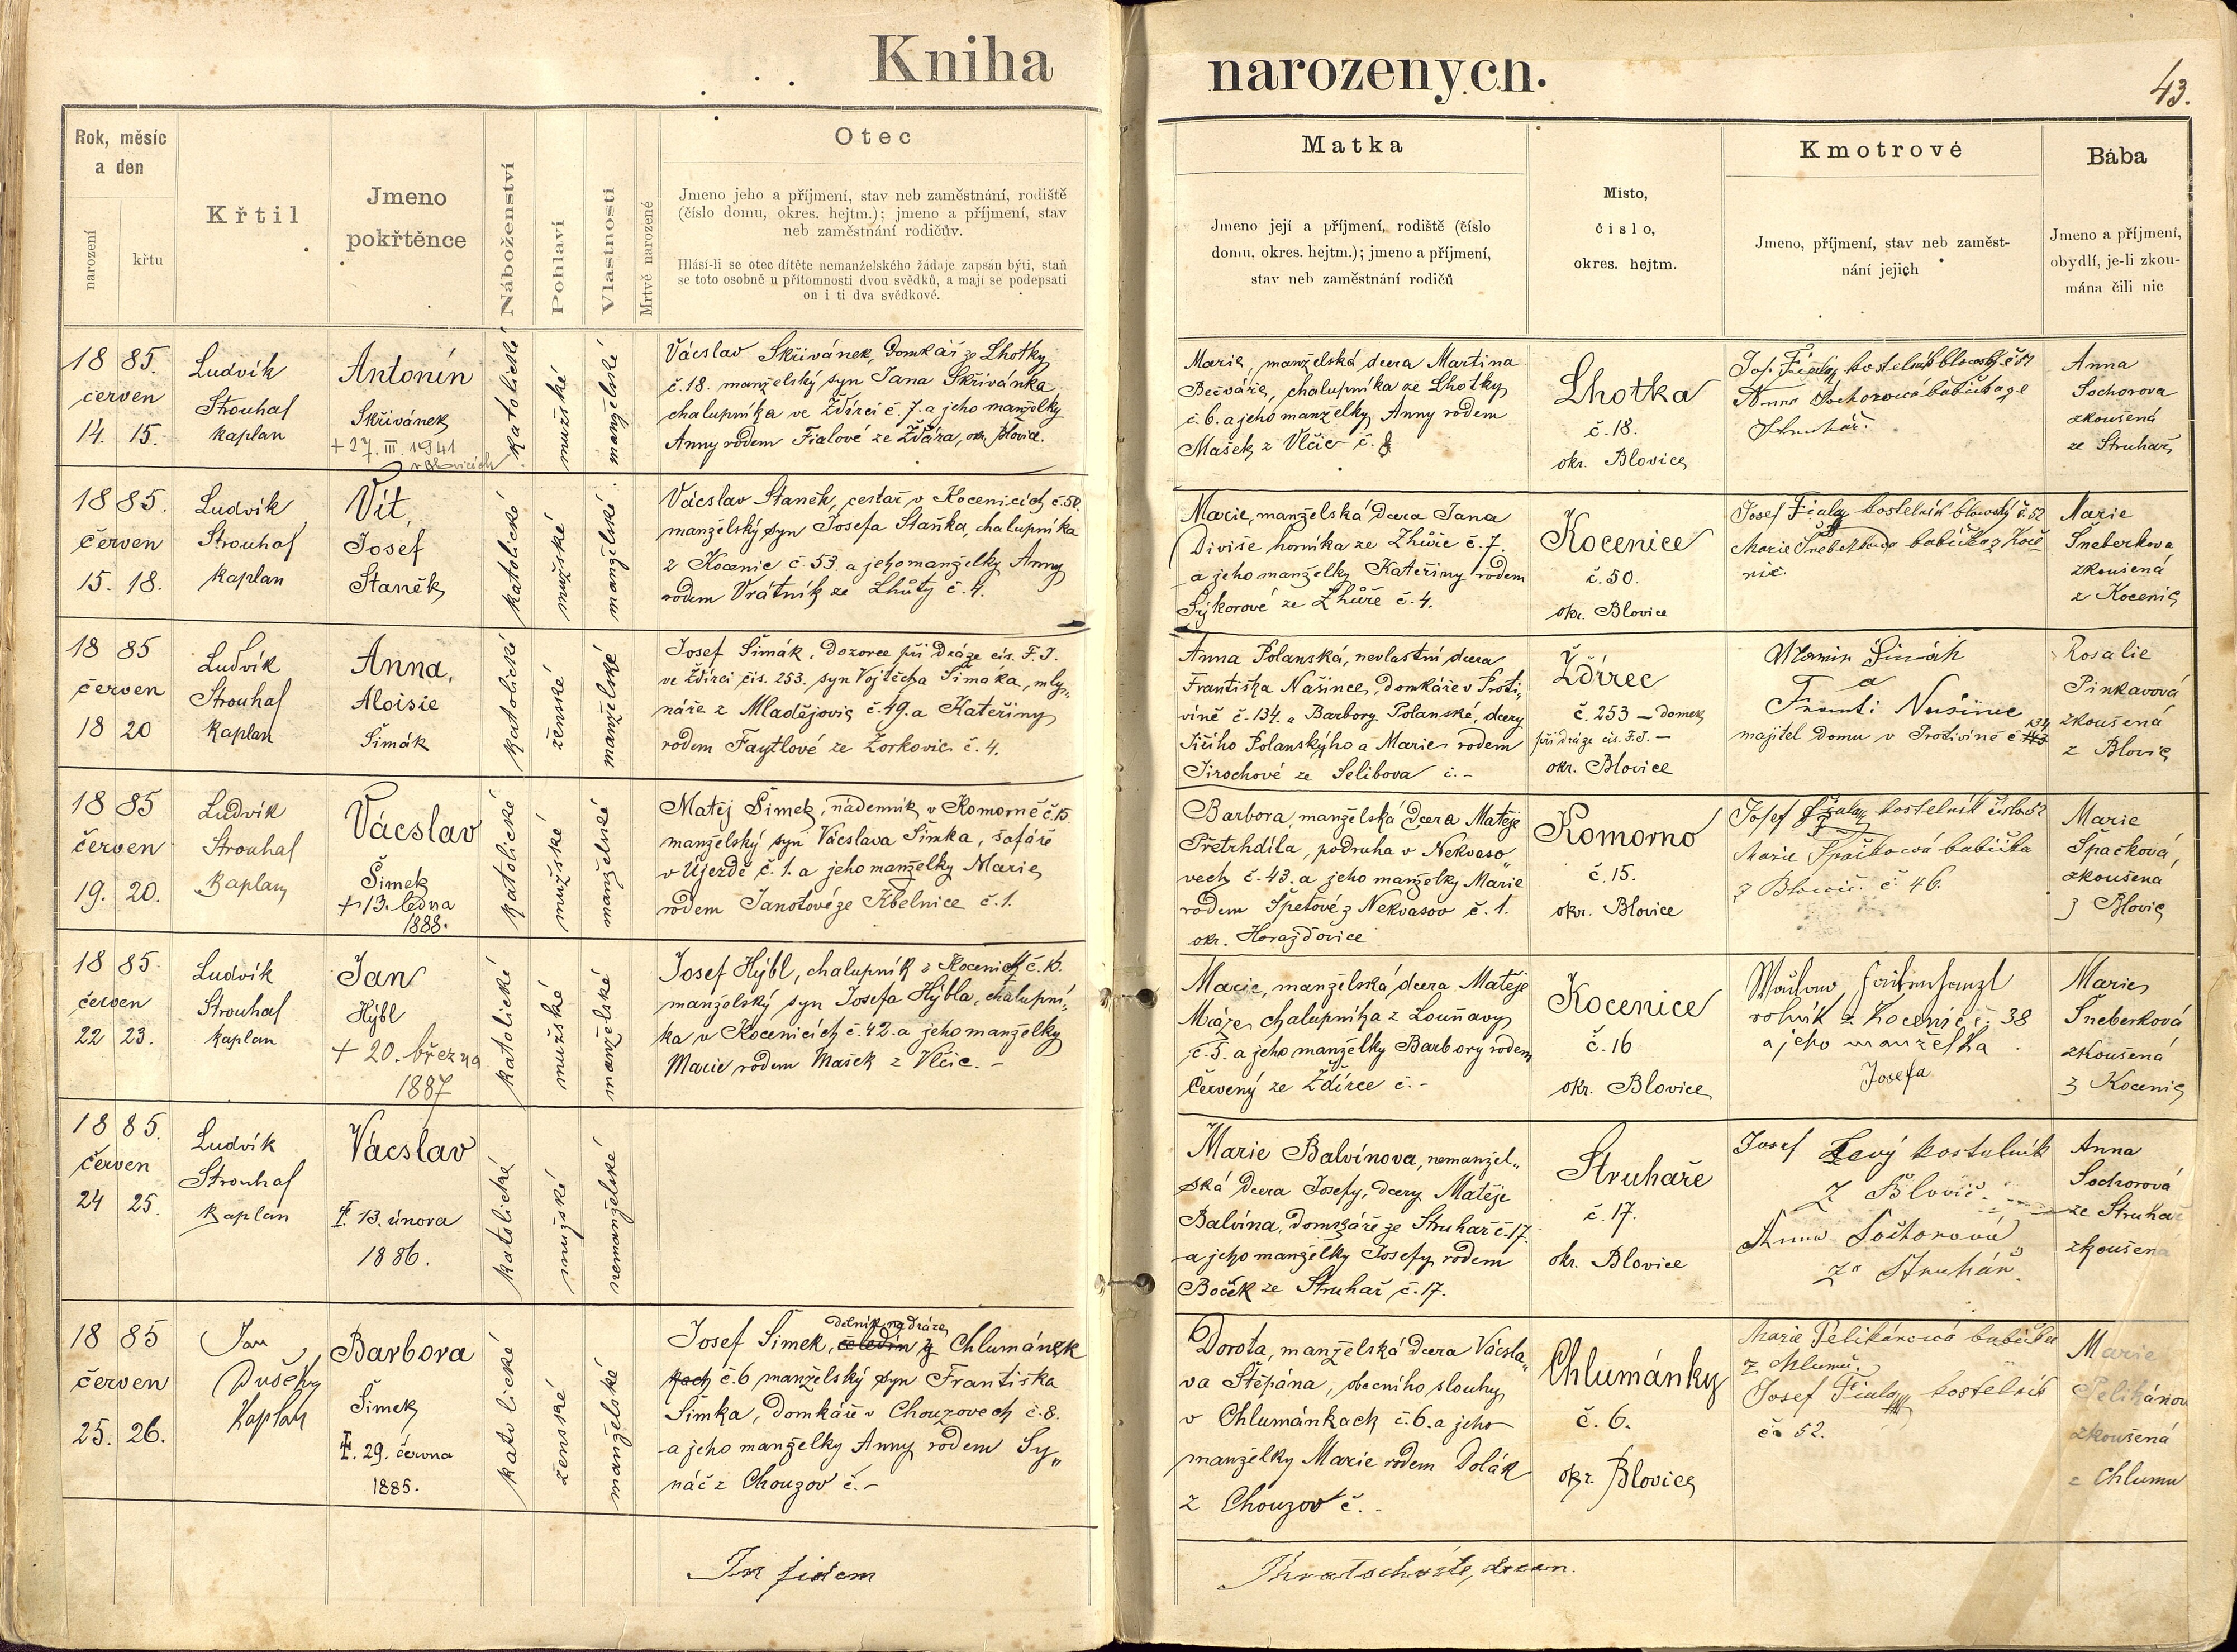 Kniha narozených.
43.
Rok, měsíc
a den
narození
křtu
Křtil
Jmeno
pokřtěnce
Náboženství
Pohlaví
Vlastnosti
Mrtvě narozené
Otec
Jmeno jeho a příjmení, stav neb zaměstnání, rodiště
(číslo domu, okres. hejtm.); jmeno a příjmení, stav
neb zaměstnání rodičův.
Hlásí-li se otec dítěte nemanželského žádaje zapsán býti, staň
se toto osobně u přítomnosti dvou svědků, a mají se podepsati
on i ti dva svědkové.
Matka
Jmeno její a příjmení, rodiště (číslo
domu, okres. hejtm.); jmeno a příjmení,
stav neb zaměstnání rodičů
Místo,
číslo,
okres. hejtm.
Kmotrové
Jmeno, příjmení, stav neb zaměst-
nání jejich
Bába
Jmeno a příjmení,
obydlí, je-li zkou-
mána čili nic
1885.
červen
14. 15.
Ludvík
Strouhal
kaplan
Antonín
Skřivánek
+ 27. III. 1941
v Blovicích
katolické
mužské
manželské
Vácslav Skřivánek, Domkář ze Lhotky
č. 18. manželský syn Jana Skřivánka
chalupníka ve Ždírci č. 7. a jeho manželky
Anny rodem Fialové ze Žďára, okr. Blovice.
Marie, manželská dcera Martina
Bečváře, chalupníka ze Lhotky
č. 6. a jeho manželky Anny rodem
Mašek z Vlčic č. 8
Lhotka
č. 18.
okr. Blovice
Jos. Fiala, kostelník blovský č. 52
Anna Sochorová babička ze
Struhař.
Anna
Sochorova
zkoušená
ze Struhař
1885.
červen
15. 18.
Ludvík
Strouhal
kaplan
Vít,
Josef
Staněk
katolické
mužské
manželské.
Vácslav Staněk, cestář v Kocenicích č. 50.
manželský syn Josefa Staňka, chalupníka
z Kocenic č. 53. a jeho manželky Anny
rodem Vrátník ze Lhůty č. 4.
Marie, manželská dcera Jana
Diviše horníka ze Zhůře č. 7.
a jeho manželky Kateřiny rodem
Sýkorové ze Zhůře č. 4.
Kocenice
č. 50.
okr. Blovice
Josef Fiala kostelník blovský č. 52
Marie Šneberková babička z Koce-
nic.
Marie
Šneberkova
zkoušená
z Kocenic
1885
červen
18 20
Ludvík
Strouhal
kaplan
Anna,
Aloisie
Šimák
katolické
ženské
manželské
Josef Šimák, Dozorce při Dráze cís. F. J.
ve Ždírci čís. 253. syn Vojtěcha Šimáka, mly„
náře z Mladějovic č. 49. a Kateřiny
rodem Faytlové ze Zorkovic č. 4.
Anna Polanská, nevlastní dcera
Františka Našince, Domkáře v Proti„
víně č. 134. a Barbory Polanské, dcery
Jiřího Polanského a Marie rodem
Jirochové ze Selibova č. -
Ždírec
č. 253 – domek
při dráze cís. F. J. –
okr. Blovice
Šimák
a
Frant. Našinec
majitel domu v Protivíně č 134
Rosalie
Pinkavová
zkoušená
z Blovic
1885
červen
19. 20.
Ludvík
Strouhal
Kaplan
Vácslav
Šimek
+ 13. ledna
1888.
katolické
mužské
manželské
Matěj Šimek, nádenník v Komorně č. 15
manželský syn Vácslava Šimka, šafáře
v Újezdě č. 1. a jeho manželky Marie
rodem Janotové ze Kbelnice č. 1.
Barbora, manželská dcera Matěje
Přetrhdíla, podruha v Nekvaso„
vech č. 43. a jeho manželky Marie
rodem Špetové z Nekvasov č. 1.
okr. Horažďovice
Komorno
č. 15.
okr. Blovice
Josef Fiala kostelník číslo 52
Marie Špačková babička
z Blovic. č. 46.
Marie
Špačková,
zkoušená
z Blovic
1885.
červen
22 23.
Ludvík
Strouhal
kaplan
Jan
Hýbl
+ 20. března
1887
katolické
mužské
manželské
Josef Hýbl, chalupník z Kocenic č. 16.
manželský syn Josefa Hýbla, chalupní„
ka v Kocenicích č. 42. a jeho manželky
Marie rodem Mašek z Vlčic. –
Marie, manželská dcera Matěje
Mráze, chalupníka z Louňavy
č. 5. a jeho manželky Barbory rodem
Červený ze Ždírce č. -
Kocenice
č. 16
okr. Blovice
rolník z Kocenic č. 38
a jeho manželka
Josefa
Marie
Šneberková
zkoušená
z Kocenic
1885.
červen
24 25.
Ludvík
Strouhal
kaplan
Vácslav
‡. 13. února
1886.
katolické
mužské
nemanželské
Marie Balvínova, nemanžel„
ská dcera Josefy, dcery Matěje
Balvína, domkáře ze Struhař č. 17.
a jeho manželky Josefy rodem
Boček ze Struhař č. 17.
Struhaře
č. 17.
okr. Blovice
Josef Levý kostelník
z Blovic.
Anna Sochorová
ze Struhař.
Anna
Sochorová
ze Struhař
zkoušená
1885
červen
25. 26.
Jan
Dušek
Kaplan
Barbora
Šimek
‡. 29. června
1885.
katolické
ženské
manželské
dělník na dráze
Josef Šimek, čeledín z Chlumánek
č. 6 manželský syn Františka
Šimka, Domkáře v Chouzovech č. 8.
a jeho manželky Anny rodem Sy„
náč z Chouzov č. -
Dorota, manželská dcera Vácsla„
va Štěpána, obecního slouhy
v Chlumánkách č. 6. a jeho
manželky Marie rodem Dolák
z Chouzov č. -
Chlumánky
č. 6.
okr. Blovice
Marie Pelikánová babička
z Chlumu.
Josef Fiala kostelník
č. 52.
Marie
Pelikánov
zkoušená
z Chlumu
In fidem